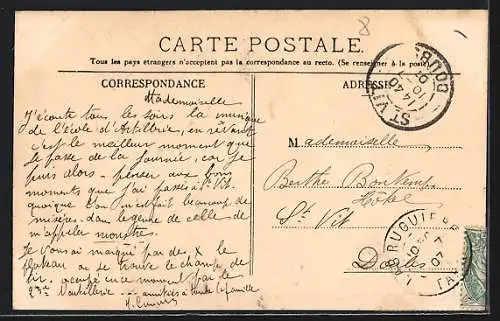 8
CARTE POSTALE.
Tous les pays étrangers n'acceptent pas la correspondance au recto. (Se renseigner à la poste).
CORRESPONDANCE
ADRESSE
Mademoiselle
J'écoute tous les soirs la musique
de l'école d'Artillerie, en rêvant
c'est le meilleur moment que
je passe de la journée, car je
puis alors penser aux bons
moments que j'ai passés à St Vit.
quoique l'on m'ait fait beaucoup de
misères. dans le genre de celle de
m'appeler monstre.
Je vous ai marqué par des X le
plateau où se trouve le champ de
tir. occupé en ce moment par le
d'artillerie amitiés à toute la famille
Mademoiselle
Berthe Bontemps
Hotel
St Vit
Doubs
ST VIT
DOUBS
14 40